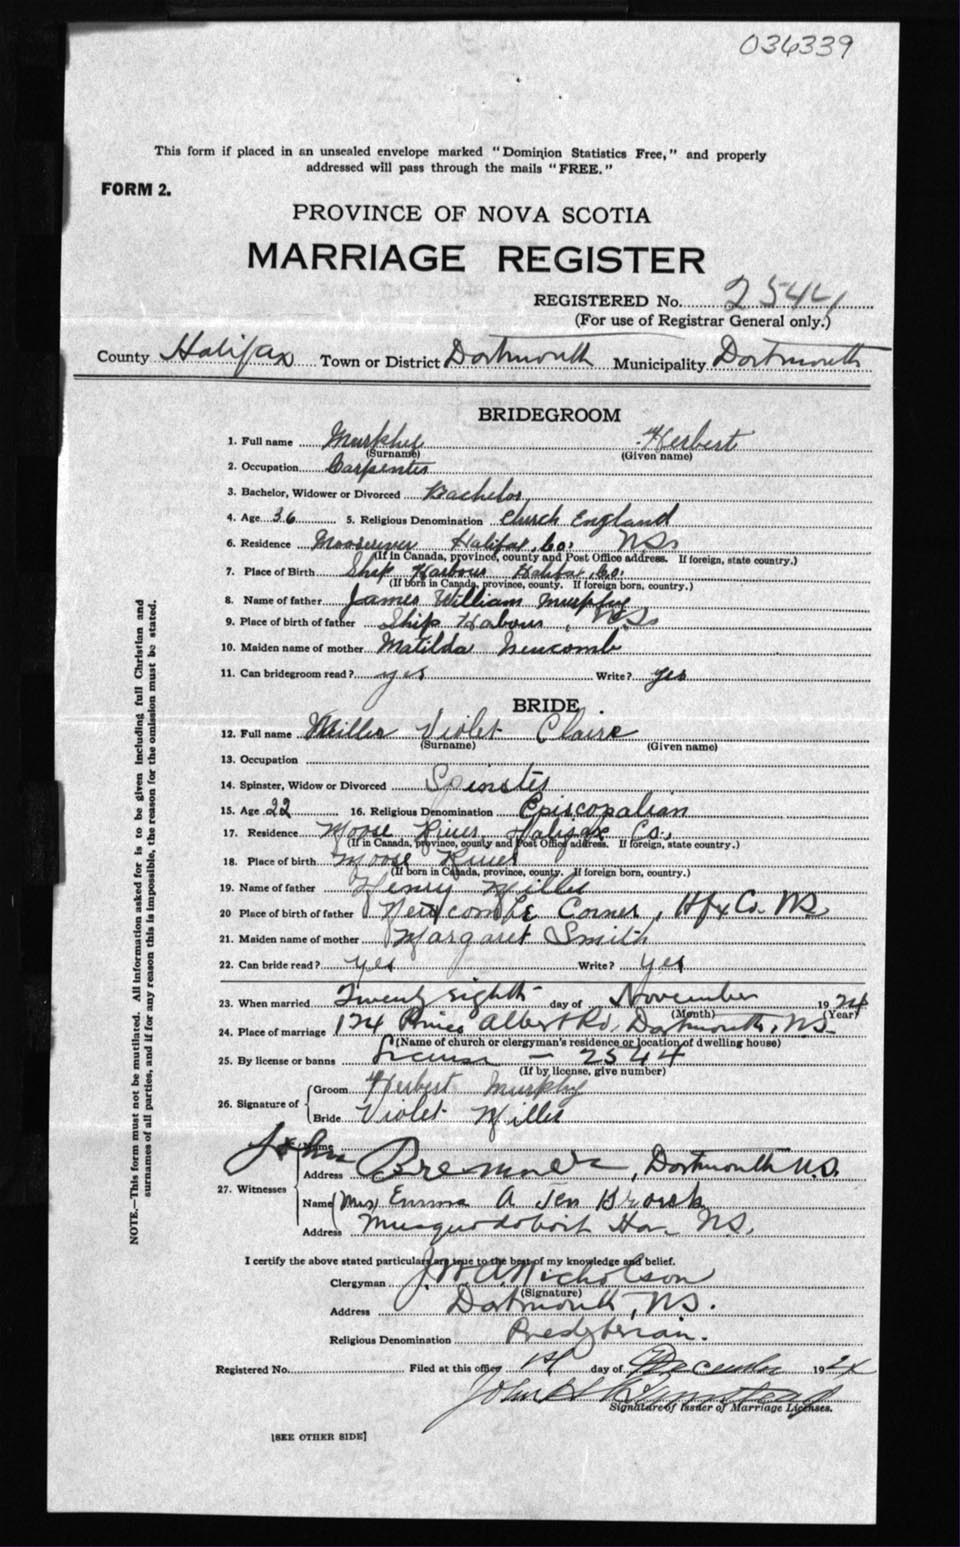 036339
This form if placed in an unsealed envelope marked "Dominion Statistics Free," and properly
addressed will pass through the mails "FREE."
FORM 2.
PROVINCE OF NOVA SCOTIA
MARRIAGE REGISTER
REGISTERED No. 2544
(For use of Registrar General only.)
County Halifax Town or District Dartmouth Municipality Dartmouth
BRIDEGROOM
1. Full name Murphy Herbert
(Surname) (Given name)
2. Occupation Carpenter
3. Bachelor, Widower or Divorced Bachelor
4. Age 36 5. Religious Denomination Church England
6. Residence Mooseriver Halifax, Co. NS
(If in Canada, province, county and Post Office address. If foreign, state country.)
7. Place of Birth Ship Harbour Halifax, Co.
(If born in Canada, province, county. If foreign born, country.)
8. Name of father James William Murphy
9. Place of birth of father Ship Habour, N.S.
10. Maiden name of mother Matilda Newcomb
11. Can bridegroom read? yes Write? yes
BRIDE
12. Full name Miller Violet Claire
(Surname) (Given name)
13. Occupation
14. Spinster, Widow or Divorced Spinster
15. Age 22 16. Religious Denomination Episcopalian
17. Residence Moose River Halifax Co.
(If in Canada, province, county and Post Office address. If foreign, state country.)
18. Place of birth Moose River
(If born in Canada, province, county. If foreign born, country.)
19. Name of father Henry Miller
20 Place of birth of father Newcombe Corner, Hfx Co. NS
21. Maiden name of mother Margaret Smith
22. Can bride read? yes Write? yes
23. When married Twenty eighth day of November 1924
(Month) (Year)
24. Place of marriage 124 Prince Albert Rd, Dartmouth, N.S.
(Name of church or clergyman's residence or location of dwelling house)
25. By license or banns License - 2544
(If by license, give number)
26. Signature of
Groom Herbert Murphy
Bride Violet Miller
27. Witnesses
Name John Bremner
Address Dartmouth N.S.
Name (Mrs) Emma A Ten Broeck
Address Musquodoboit Har. N.S.
I certify the above stated particulars are true to the best of my knowledge and belief.
Clergyman J.W.A. Nicholson
(Signature)
Address Dartmouth, N.S.
Religious Denomination Presbyterian.
Registered No. Filed at this office 1st day of December 1924
John H
Signature of Issuer of Marriage Licenses.
[SEE OTHER SIDE]
NOTE.—This form must not be mutilated. All information asked for is to be given including full Christian and
surnames of all parties, and if for any reason this is impossible, the reason for the omission must be stated.